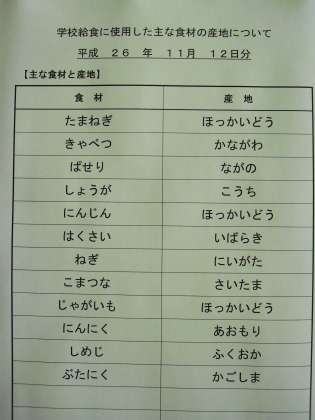 学校給食に使用した主な食材の産地について
平成 26 年 11月 12日分
【主な食材と産地】
食 材 産 地
たまねぎ ほっかいどう
きゃべつ かながわ
ぱせり ながの
しょうが こうち
にんじん ほっかいどう
はくさい いばらき
ねぎ にいがた
こまつな さいたま
じゃがいも ほっかいどう
にんにく あおもり
しめじ ふくおか
ぶたにく かごしま